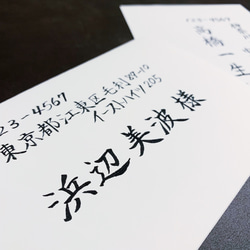 23-4567
東京都江東区毛利87-10
イーストハイツ205
浜辺美波様
高橋一生